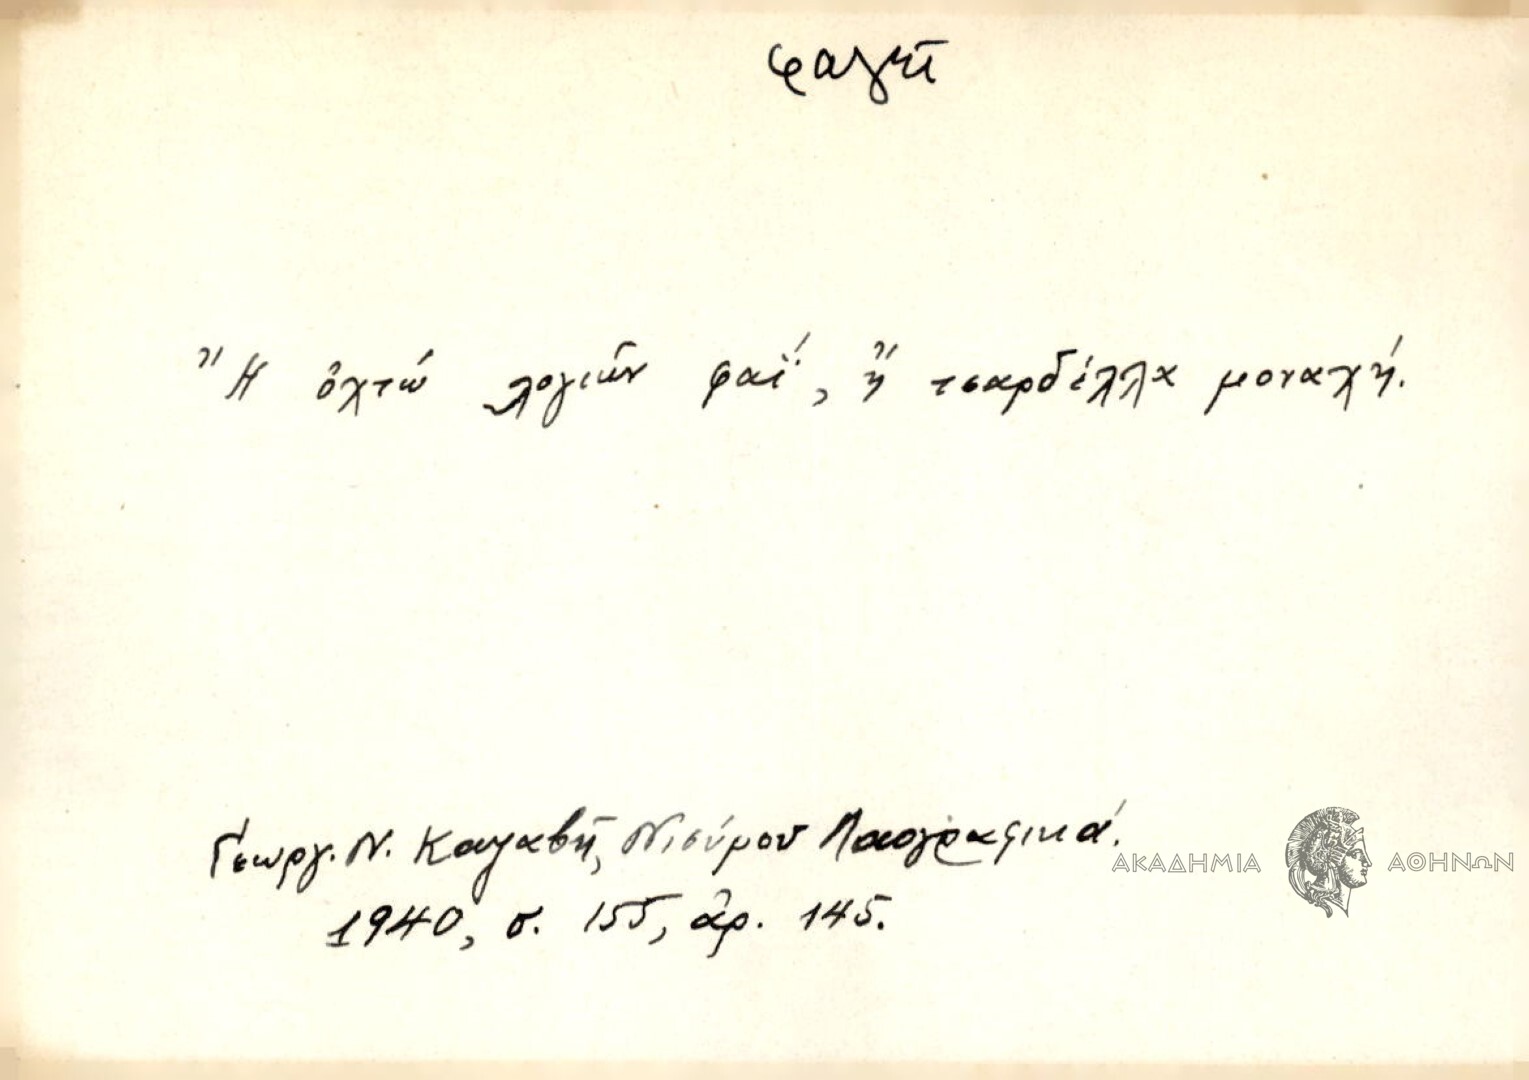 φαγῖ
Ἢ ὀχτώ λογιῶν φαΐ, ἢ τσαρδέλλα μοναχή.
Γεωργ. Ν. Καζαβῆ, Νισύρου Λαογραφικά.
1940, σ. 155, ἀρ. 145.
ΑΚΑΔΗΜΙΑ ΑΘΗΝΩΝ